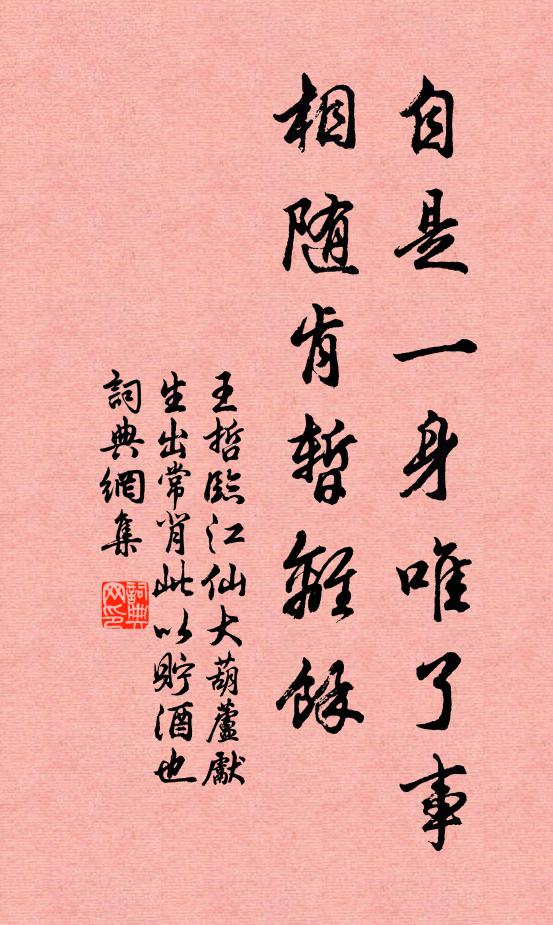 自是一身唯了事
相随肯暫離餘
王哲臨江仙大葫蘆獻
生出常肖此以貯酒也
詞典網集
詞典
网印